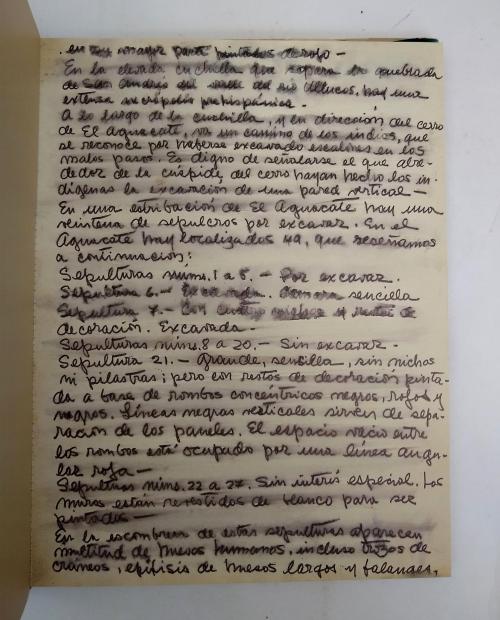 en su mayor parte pintados de rojo —
En la elevada cuchilla que separa la quebrada
de San Andrés del valle del río Ullucos, hay una
extensa necrópolis prehispánica.
A lo largo de la cuchilla, y en dirección del cerro
de El Aguacate, va un camino de los indios, que
se reconoce por haberse excavado escalones en los
malos pasos. Es digno de señalarse el que alre-
dedor de la cúspide del cerro hayan hecho los in-
dígenas la excavación de una pared vertical —
En una estribación de El Aguacate hay una
veintena de sepulcros por excavar. En el
Aguacate hay localizados 49, que reseñamos
a continuación:
Sepulturas núms. 1 a 5. — Por excavar.
Sepultura 6. — Excavada. Cámara sencilla
Sepultura 7. — Con cuatro nichos y restos de
decoración. Excavada —
Sepulturas núms. 8 a 20. — Sin excavar —
Sepultura 21. — Grande, sencilla, sin nichos
ni pilastras; pero con restos de decoración pinta-
da a base de rombos concéntricos negros, rojos y
negros. Líneas negras verticales sirven de sepa-
ración de los paneles. El espacio vacío entre
los rombos está ocupado por una línea angu-
lar roja —
Sepulturas núms. 22 a 27. Sin interés especial. Los
muros están revestidos de blanco para ser
pintados —
En la escombrera de estas sepulturas aparecen
multitud de huesos humanos, incluso trozos de
cráneos, epífisis de huesos largos y falanges,